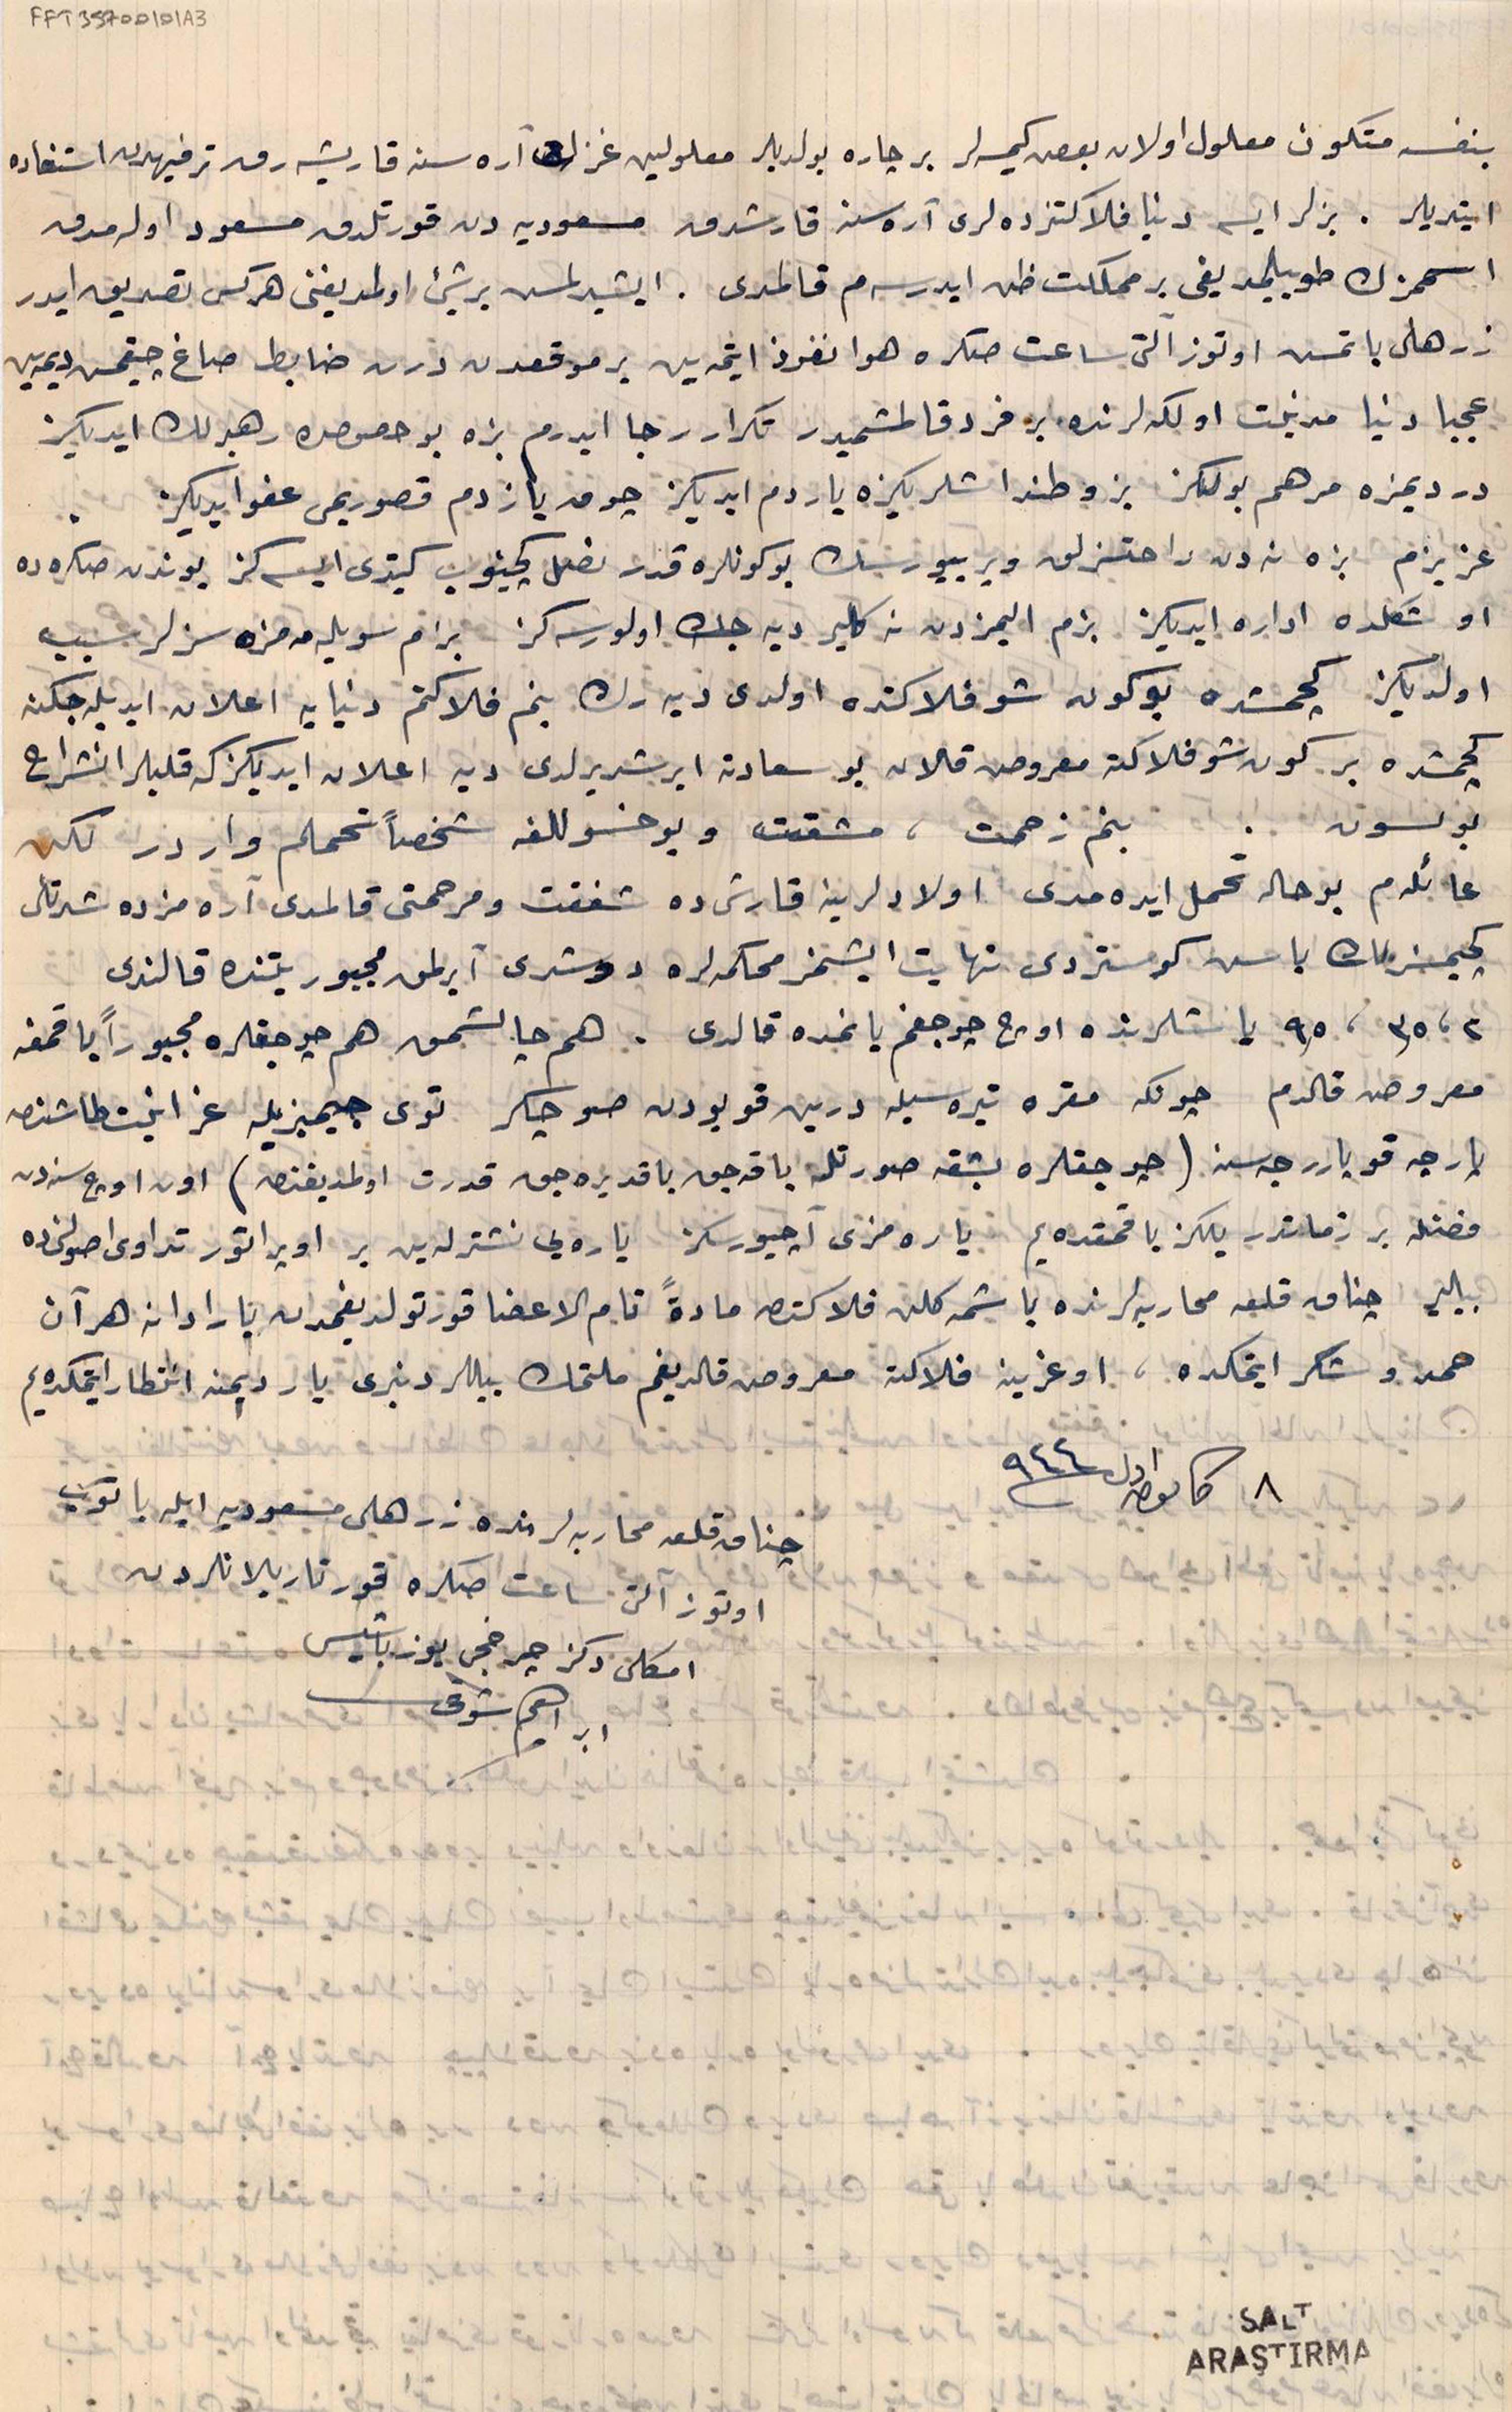 FFT35700101A3
بنفسه متكون معلول اولان بعض كیمسه‌لر بر چاره بولدیلر معلولین غزات آره سنه قاریشه رق ترفیهدن استفاده
ایتدیلر . بزلر ایسه دنیا فلاكتزده لری آره سنه قارشدق مسعودیه دن قورتلدق مسعود اوله مدق
اسممزك طویلمدیغی بر مملكت ظن ایدرسه م قالمدی . ایشیدلمسی بر شیئ اولمدیغنی هركس تصدیق ایدر
زرهلی باتمسی اوتوز آلتی ساعت صكره هوا نفوذ ایتمه ین بر موقعدن درت ضابط صاغ چیقمسی دیمه ین
عجبا دنیا مدنیت اولكه لرنده بر فرد قالمشمیدر تكرار رجا ایدرم بزه بو حصوصده رهبرلك ایدیكز
دردیمزه مرهم بولكز بز وطنداشلریكزه یاردم ایدیكز چوق یازدم قصوریمی عفو ایدیكز .
عزیزم بزه نه دن راحتسزلق ویرییورسك بو كونلره قدر نصل كچینوب كیتدی ایسه كز بوندن صكره ده
او شكلده اداره ایدیكز بزم الیمزدن نه كلیر دیه جك اولورسه كز برام سویله مه مزه سزلر سبب
اولدیكز كچمشده بو كون شو فلاكتده اولدی دیه رك بنم فلاكتم دنیایه اعلان ایدیله جكنه
كچمشده بر كون شو فلاكته معروض قالان بو سعادته ایرشدیرلدی دیه اعلان ایدیكز كه قلبلر انشراح
بولسون . بنم زحمت ، مشقت و یوخسوللغه شخصاً تحملم واردر لكن
عائله م بو حاله تحمل ایده مدی اولادلرینه قارشی ده شفقت و مرحمتی قالمدی آره مزده شدتلی
كچیمسزلك باش كوستردی نهایت ایشمز محكمه لره دوشدی آیرلمق مجبوریتنده قالندی
٢ ، ٣٥ ، ٩٥ یاشلرنده اوچ چوجغم یانمده قالدی . هم چالشمق هم چوجقلره مجبوراً باقمغه
معروض قالدم چونكه مقره تیره سیله درین قویودن صو چكر توی جیمبزیله غرانیت طاشندن
پارچه قوپاررجه سنه (چوجقلره بشقه صورتله باقه جق باقدیره جق قدرت اولمدیغندن) اون اوچ سنه دن
فضله بر زماندر یالكز باقمقده یم یاره مزی آچیورسكز یاره یی نشترله ین بر اوپراتور تداوی اصولنی ده
بیلیر چناق قلعه محاربه لرنده باشمه كلن فلاكتدن مادةً تام الاعضا قورتولدیغمدن یارادانه هر آن
حمد و شكر ایتمكده ، اوغرینه فلاكته معروض قالدیغم ملتمك بیللردنبری یاردیمنه انتظار ایتمكده یم
٨ كانون اول ٩٤٤
چناق قلعه محاربه لرنده زرهلی مسعودیه ایله باتوب
اوتوز آلتی ساعت صكره قورتاریلانلردن
امكلی دكز چرخجی یوزباشیسی
ابراهیم شوقی
SALT
ARAŞTIRMA